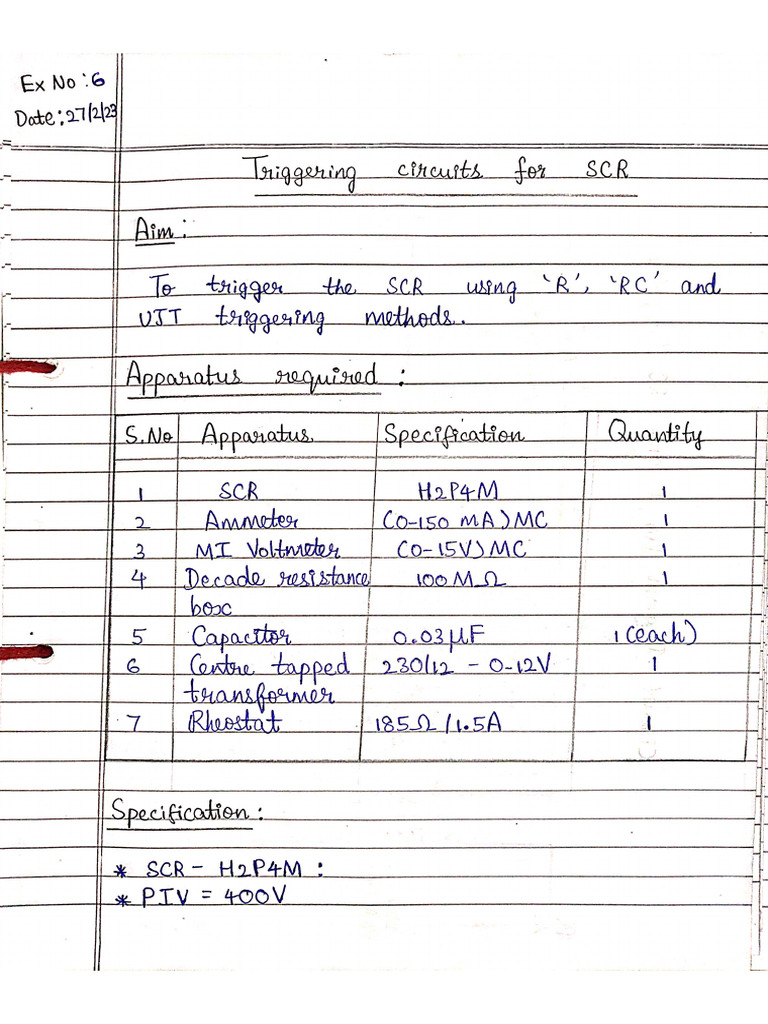 Ex No : 6
Date: 27/2/23
Triggering circuits for SCR
Aim :
To trigger the SCR using 'R', 'RC' and
UJT triggering methods.
Apparatus required :
S.No Apparatus Specification Quantity
1 SCR H2P4M 1
2 Ammeter (0-150 MA) MC 1
3 MI Voltmeter (0-15V) MC 1
4 Decade resistance 100 M Ω 1
box
5 Capacitor 0.03 µF 1 (each)
6 Centre tapped 230/12 - 0-12V 1
transformer
7 Rheostat 185Ω / 1.5A 1
Specification :
* SCR - H2P4M :
* PIV = 400V